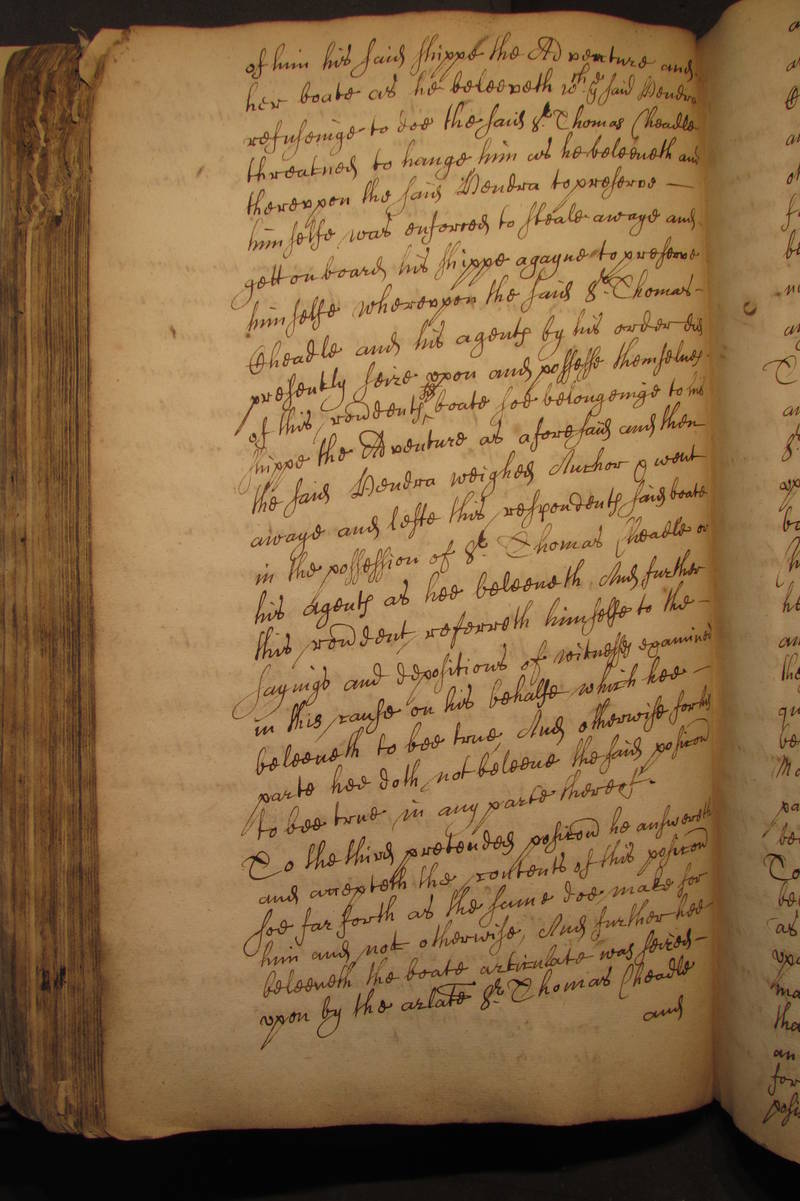 of him his said shippe the Adventure and
her boate as he beleeveth wch ye said Hendra
refuseinge to doe the said Sr Thomas Cheadle
threatned to hange him as he beleeueth and
therevpon the said Hendra to preserve —
himselfe was enforced to steale awaye and
gett on board his shippe agayne to preserve
himselfe wherevpon the said Sr Thomas –
Cheadle and his agents by his order did
presently seize vpon and possesse themselues
of this rendents boate soe belongeinge to his
shippe the Adventure as aforesaid and then
the said Hendra weighed Anchor & went
awaye and lefte this respondents said boate
in the possession of Sr Thomas Cheadle or
his agents as hee beleeueth And further
this rendent referreth himselfe to the –
sayings and depositions of witnesses examined
in this cause on his behalfe which hee –
beleeueth to bee true, And otherwise for his
parte hee doth not beleeue the said posicon
to bee true in any parte thereof.
To the third pretended posicon he answereth
and accepteth the contents of this posicon
soe far forth as the same doe make for
him and not otherwise, And further hee
beleeueth the boate articulate was seized –
vpon by the arlate Sr Thomas Cheadle
and